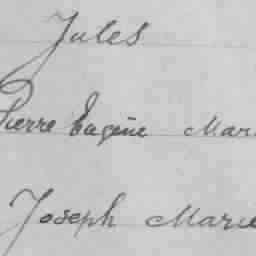 Jules
Pierre Eugène Mar
Joseph Marie